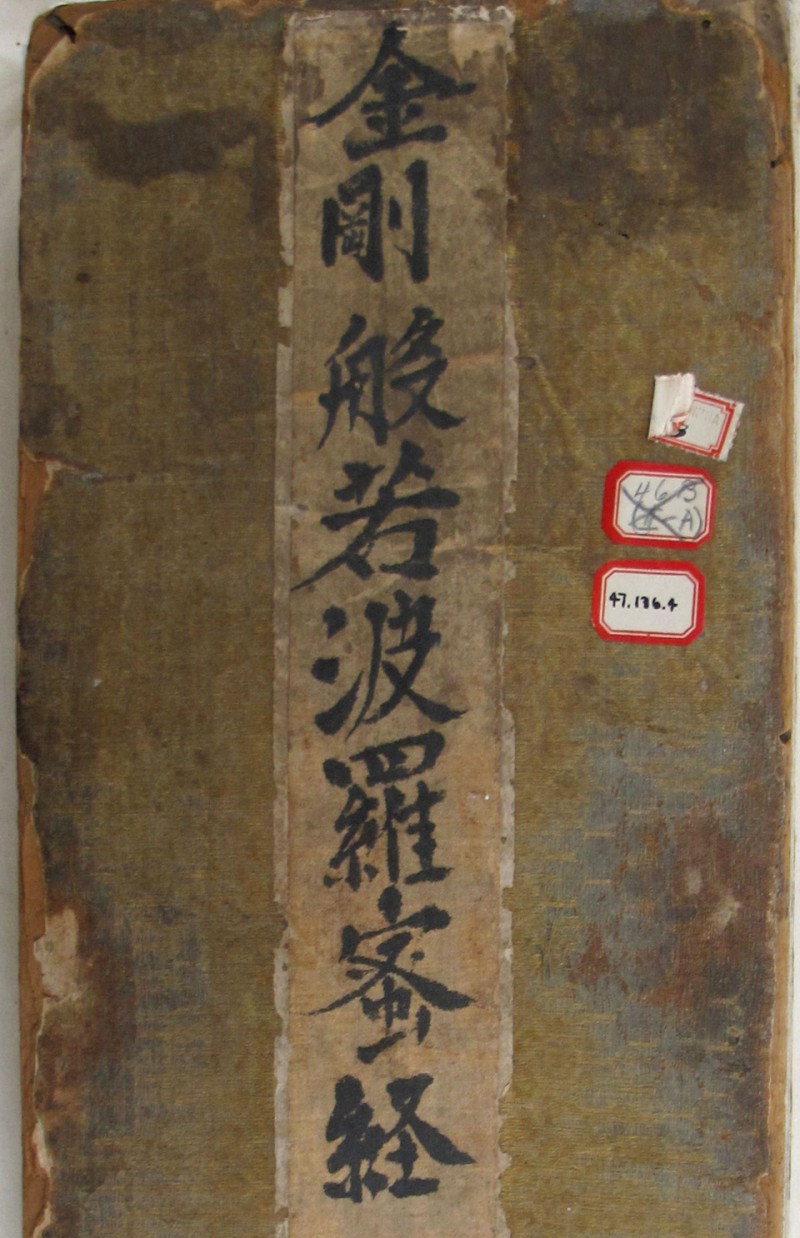 金剛般若波羅蜜経
46B
(II-A)
47.136.4